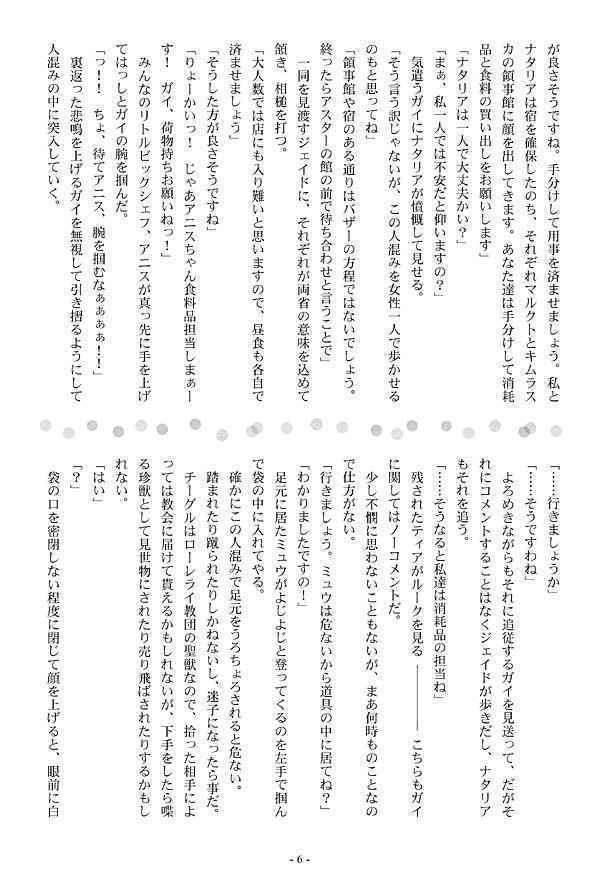 が良さそうですね。手分けして用事を済ませましょう。私と
ナタリアは宿を確保したのち、それぞれマルクトとキムラス
カの領事館に顔を出してきます。あなた達は手分けして消耗
品と食料の買い出しをお願いします」
「ナタリアは一人で大丈夫かい？」
「まぁ、私一人では不安だと仰いますの？」
気遣うガイにナタリアが憤慨して見せる。
「そう言う訳じゃないが、この人混みを女性一人で歩かせる
のもと思ってね」
「領事館や宿のある通りはバザーの方程ではないでしょう。
終ったらアスターの館の前で待ち合わせと言うことで」
一同を見渡すジェイドに、それぞれが両省の意味を込めて
頷き、相槌を打つ。
「大人数では店にも入り難いと思いますので、昼食も各自で
済ませましょう」
「そうした方が良さそうですね」
「りょーかいっ！　じゃあアニスちゃん食料品担当しまぁー
す！　ガイ、荷物持ちお願いねっ！」
みんなのリトルビックシェフ、アニスが真っ先に手を上げ
てはっしとガイの腕を掴んだ。
「っ！！　ちょ、待てアニス、腕を掴むなぁぁぁぁ！！」
裏返った悲鳴を上げるガイを無視して引き摺るようにして
人混みの中に突入していく。
「……行きましょうか」
「……そうですわね」
よろめきながらもそれに追従するガイを見送って、だがそ
れにコメントすることはなくジェイドが歩きだし、ナタリア
もそれを追う。
「……そうなると私達は消耗品の担当ね」
残されたティアがルークを見る ――― こちらもガイ
に関してはノーコメントだ。
少し不憫に思わないこともないが、まあ何時ものことなの
で仕方がない。
「行きましょう。ミュウは危ないから道具の中に居てね？」
「わかりましたですの！」
足元に居たミュウがよじよじと登ってくるのを左手で掴ん
で袋の中に入れてやる。
確かにこの人混みで足元をうろちょろされると危ない。
踏まれたり蹴られたりしかねないし、迷子になったら事だ。
チーグルはローレライ教団の聖獣なので、拾った相手によ
っては教会に届けて貰えるかもしれないが、下手をしたら喋
る珍獣として見世物にされたり売り飛ばされたりするかもし
れない。
「はい」
「？」
袋の口を密閉しない程度に閉じて顔を上げると、眼前に白
- 6 -